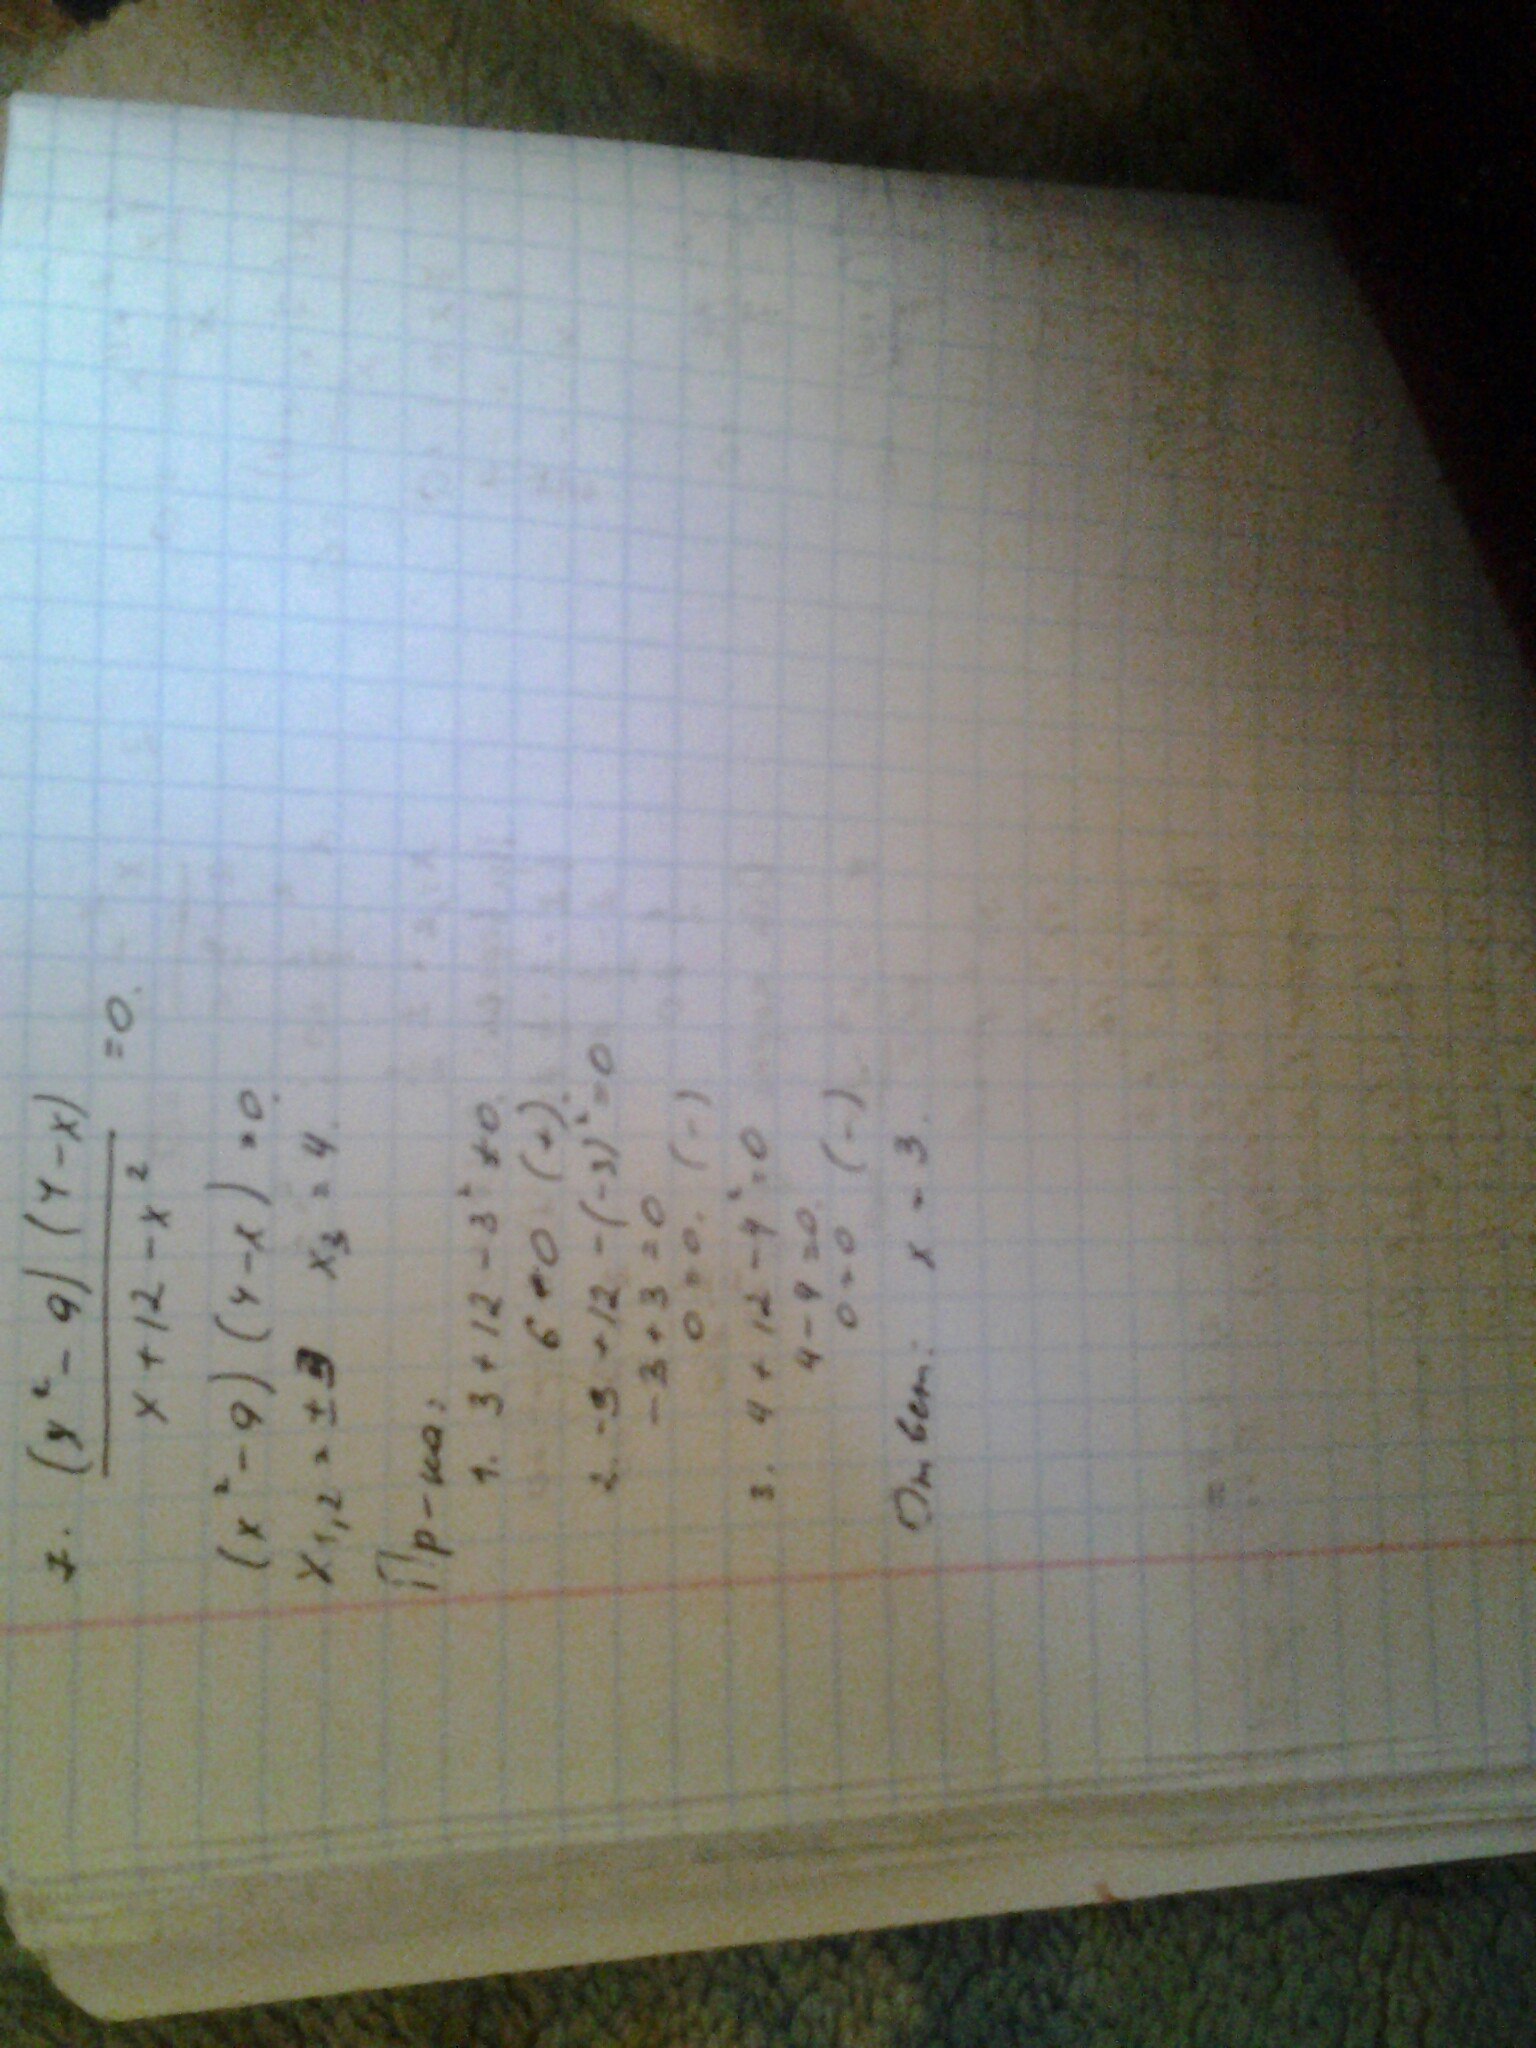 7. (x² - 9)(4-x)
x+12-x² =0.
(x² - 9)(4-x)=0.
x1,2 = ±3 x3 = 4.
Пр-ка:
1. 3+12-3² ≠0.
6≠0 (+).
2. -3+12-(-3)²=0
-3+3=0
0=0. (-)
3. 4+12-4²=0
4-4=0.
0=0 (-)
Ответ: x = 3.